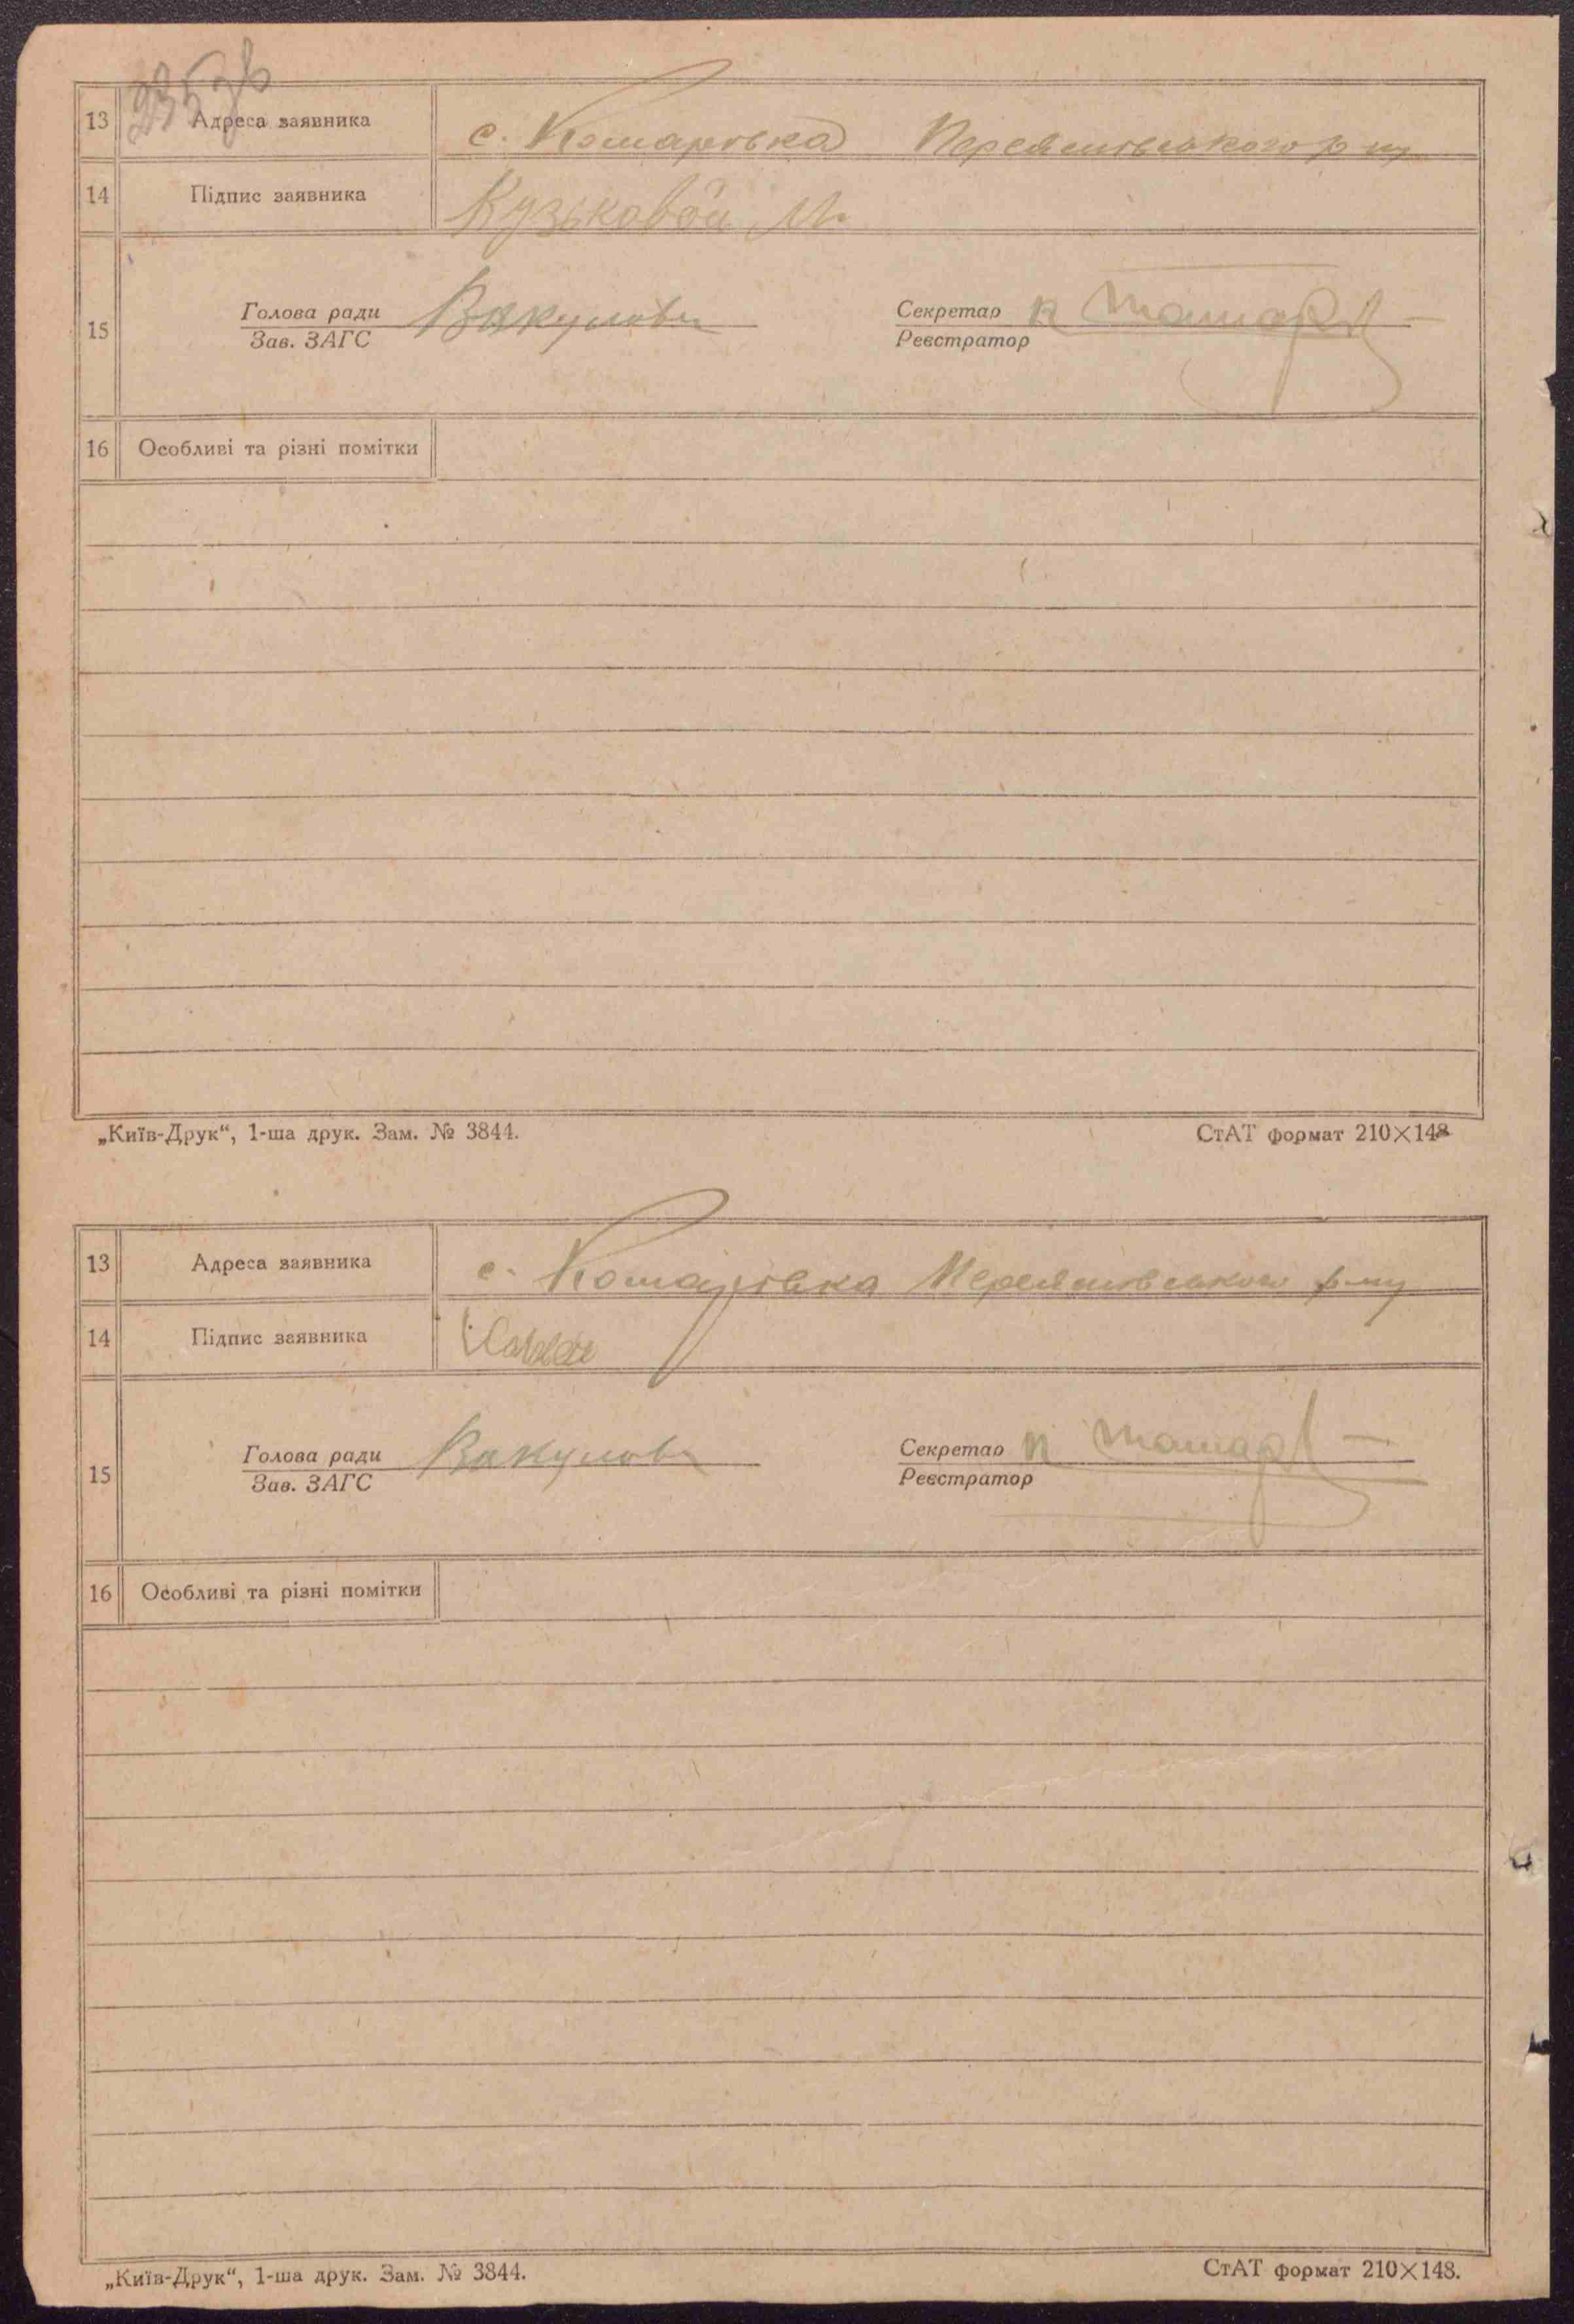 13 Адреса заявника с. Комарівка Переяславського р-ну
14 Підпис заявника Кузьковой М.
15
Голова ради Вакулов Секретар
Зав. ЗАГС Реєстратор
16 Особливі та різні помітки
„Київ-Друк“, 1-ша друк. Зам. № 3844. СтАТ формат 210×148
13 Адреса заявника с. Комарівка р-ну
14 Підпис заявника
15
Голова ради Вакулов Секретар
Зав. ЗАГС Реєстратор
16 Особливі та різні помітки
„Київ-Друк“, 1-ша друк. Зам. № 3844. СтАТ формат 210×148.